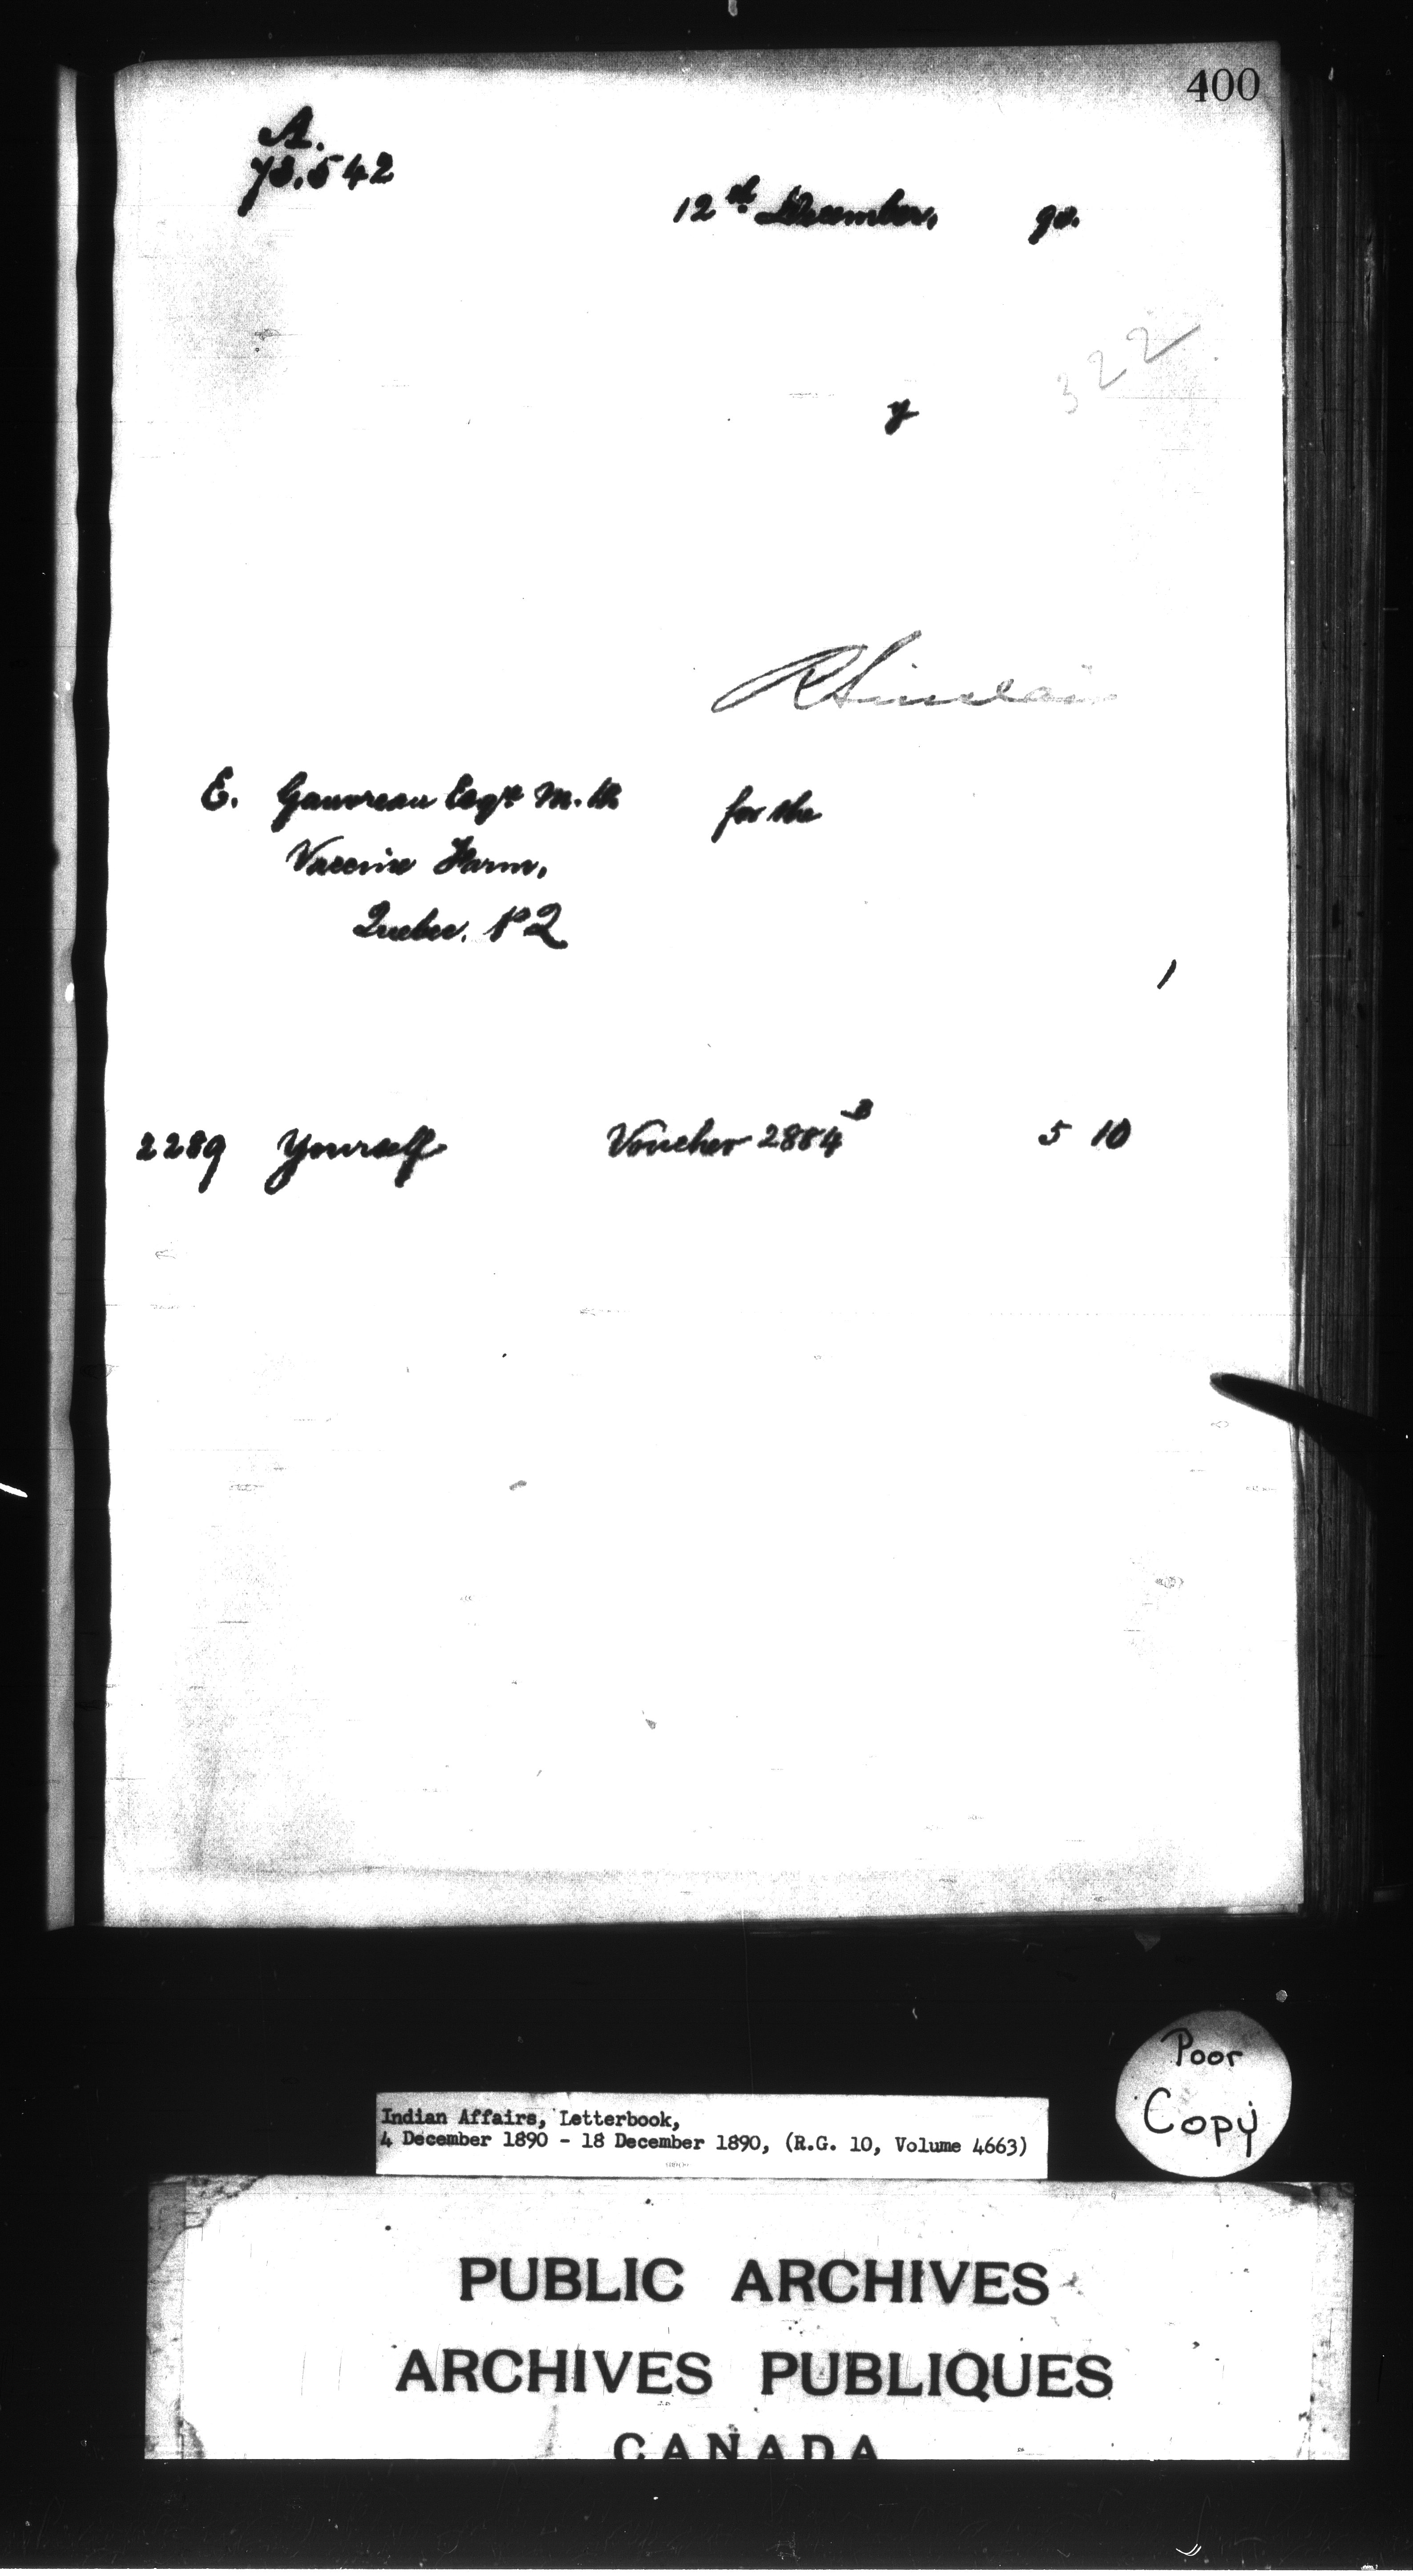 400
A.
73.542
12th December, 90.
322
y
R Sinclair
E. Gauvreau Esqre M.D. for the
Vaccine Farm,
Quebec. P Q
1
2289 Yourself Voucher 2884 B 5 10
Poor
Copy
Indian Affairs, Letterbook,
4 December 1890 - 18 December 1890, (R.G. 10, Volume 4663)
PUBLIC ARCHIVES
ARCHIVES PUBLIQUES
CANADA